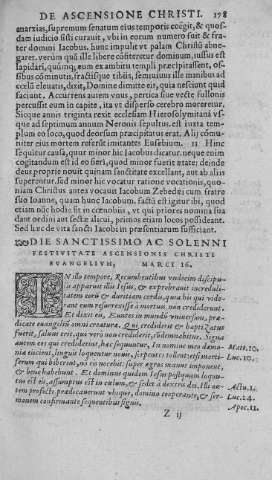 DE ASCENSIONE CHRISTI. 178
anarxias, supremum senatum eius temporis coëgit, & quosdam
iudicio sisti curauit, vbi in eorum numero fuit & frater
domini Iacobus. hunc impulit vt palam Christū abnegaret.
verùm quū ille libere côfiteretur dominum, iussit est
lapidari, quāmqs, eum ex ambitu templi præcipitassent, ossibus
cōminutis, fractisque tibiis, semiuiuus ille manibus ad
cœlū eleuatis, dixit, Domine dimitte eis, quia nesciunt quid
faciunt. Accurrens autem vnus, pertica siue vecte fullonis
percussit eum in capite, ita vt disperso cerebro moreretur.
Sicque annis triginta rexit ecclesiam Hierosolymitanā vsque
ad septimum annum Neronis sepultus, est iuxta templum
eo loco, quo deorsum præcipitatus erat. Alij cōmuniter
eius mortem referūt imitantes Eusebium. 11 Hinc
sequitur causa, quur minor hic Iacobus dicatur. neque enim
cogitandum est id eo fieri, quod minor fuerit ætate: deinde
deus proprio nouit quinam sanctitate excellant, aut ab aliis
superentur. sed minor hic vocatur ratione vocationis, quoniam
Christus antea vocauit Iacobum Zebedæi, cum fratre
suo Ioanne, quam hunc Iacobum. factū est igitur ibi, quod
etiam nūc hodie fit in cœnobiis, vt qui priores nomina sua
dant ordini aut sectæ alicui, primū etiam locos possideant.
Sed hæc de vita sancti Iacobi in præsentiarum sufficiant.
DIE SANCTISSIMO AC SOLENNI
FESTIVITATE ASCENSIONIS CHRISTI
EVANGELIVM, MARCI 16.
IN illo tempore, Recumbentibus vndecim discipulis
apparuit illis Iesus, & exprobrauit incredulitatem
eorū & duritiam cordis, quia his qui viderant
eum resurrexisse à mortuis, non crediderunt.
Et dixit eis, Euntes in mundū vniuersum, prædicate
euangeliū omni creaturæ. Qui crediderit & baptizatus
fuerit, saluus erit. qui verò non crediderit, condemnabitur. Signa
autem eos qui crediderint, hæc sequuntur, In nomine meo dæmonia
eiicient, linguis loquentur nouis, serpentes tollent. etsi mortiferum
quid biberint, nō eis nocebit. super ægros manus imponent,
& bene habebunt. Et dominus quidem Iesus postquam loquutus
est eis, assumptus est in cœlum, & sedet à dextris dei. Illi autem
profecti prædicauerunt vbique, domino cooperante, & sermonem
confirmante sequentibus signis.
Matt.10.
Luc.10.
Actu.1.
Luc.24.
Apoc.12.
Z ij